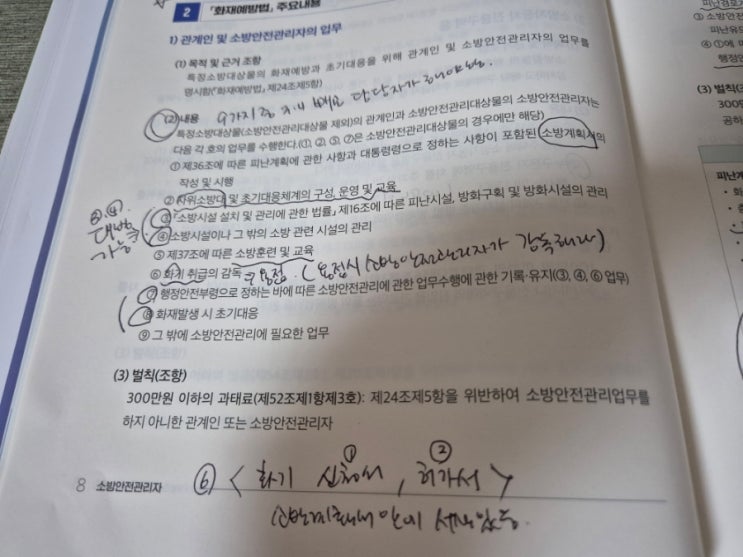 2 「화재예방법」 주요내용
1) 관계인 및 소방안전관리자의 업무
(1) 목적 및 근거 조항
특정소방대상물의 화재예방과 초기대응을 위해 관계인 및 소방안전관리자의 업무를
명시함(「화재예방법」 제24조제5항)
9가지 중 지나 빼고 담당자가 해야됨.
(2) 내용
특정소방대상물(소방안전관리대상물 제외)의 관계인과 소방안전관리대상물의 소방안전관리자는
다음 각 호의 업무를 수행한다.(①, ②, ⑤, ⑦은 소방안전관리대상물의 경우에만 해당)
① 제36조에 따른 피난계획에 관한 사항과 대통령령으로 정하는 사항이 포함된 소방계획서의
작성 및 시행
② 자위소방대 및 초기대응체계의 구성, 운영 및 교육
③ 「소방시설 설치 및 관리에 관한 법률」 제16조에 따른 피난시설, 방화구획 및 방화시설의 관리
③, ④
대행
가능
④ 소방시설이나 그 밖의 소방 관련 시설의 관리
⑤ 제37조에 따른 소방훈련 및 교육
⑥ 화기 취급의 감독
용접. (용접시 소방안전관리자가 감독해라)
⑦ 행정안전부령으로 정하는 바에 따른 소방안전관리에 관한 업무수행에 관한 기록·유지(③, ④, ⑥ 업무)
⑧ 화재발생 시 초기대응
⑨ 그 밖에 소방안전관리에 필요한 업무
(3) 벌칙(조항)
300만원 이하의 과태료(제52조제1항제3호): 제24조제5항을 위반하여 소방안전관리업무를
하지 아니한 관계인 또는 소방안전관리자
① ②
⑥ < 화기 신청서, 허가서 >
8 소방안전관리자
③ 소방안전
피난유도
④ ①에
행정안
(3) 벌칙(조
300만
공하
피난계